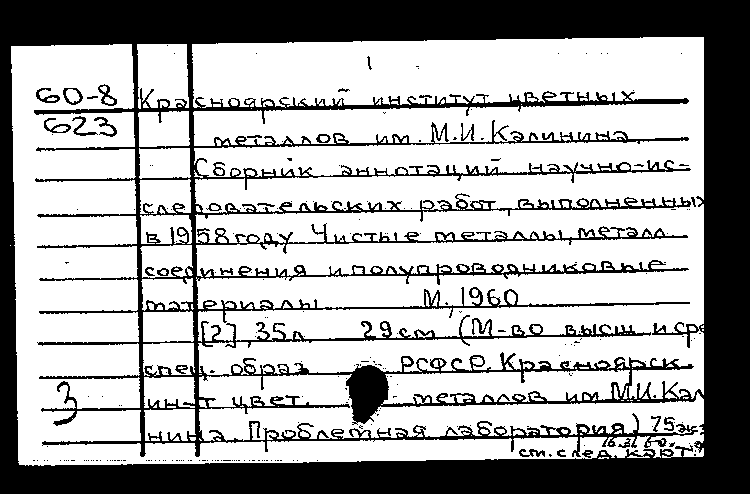 1
60-8 Красноярский институт цветных
623 металлов им. М.И. Калинина.
Сборник аннотаций научно-ис-
следовательских работ, выполненных
в 1958 году Чистые металлы, металл.
соединения и полупроводниковые
материалы М., 1960
[2], 35 л. 29 см (М-во высш и сре
спец. образ РСФСР. Красноярск.
3 ин-т цвет. металлов им М.И. Кал
нина. Проблемная лаборатория) 75 экз
см. след. карт.